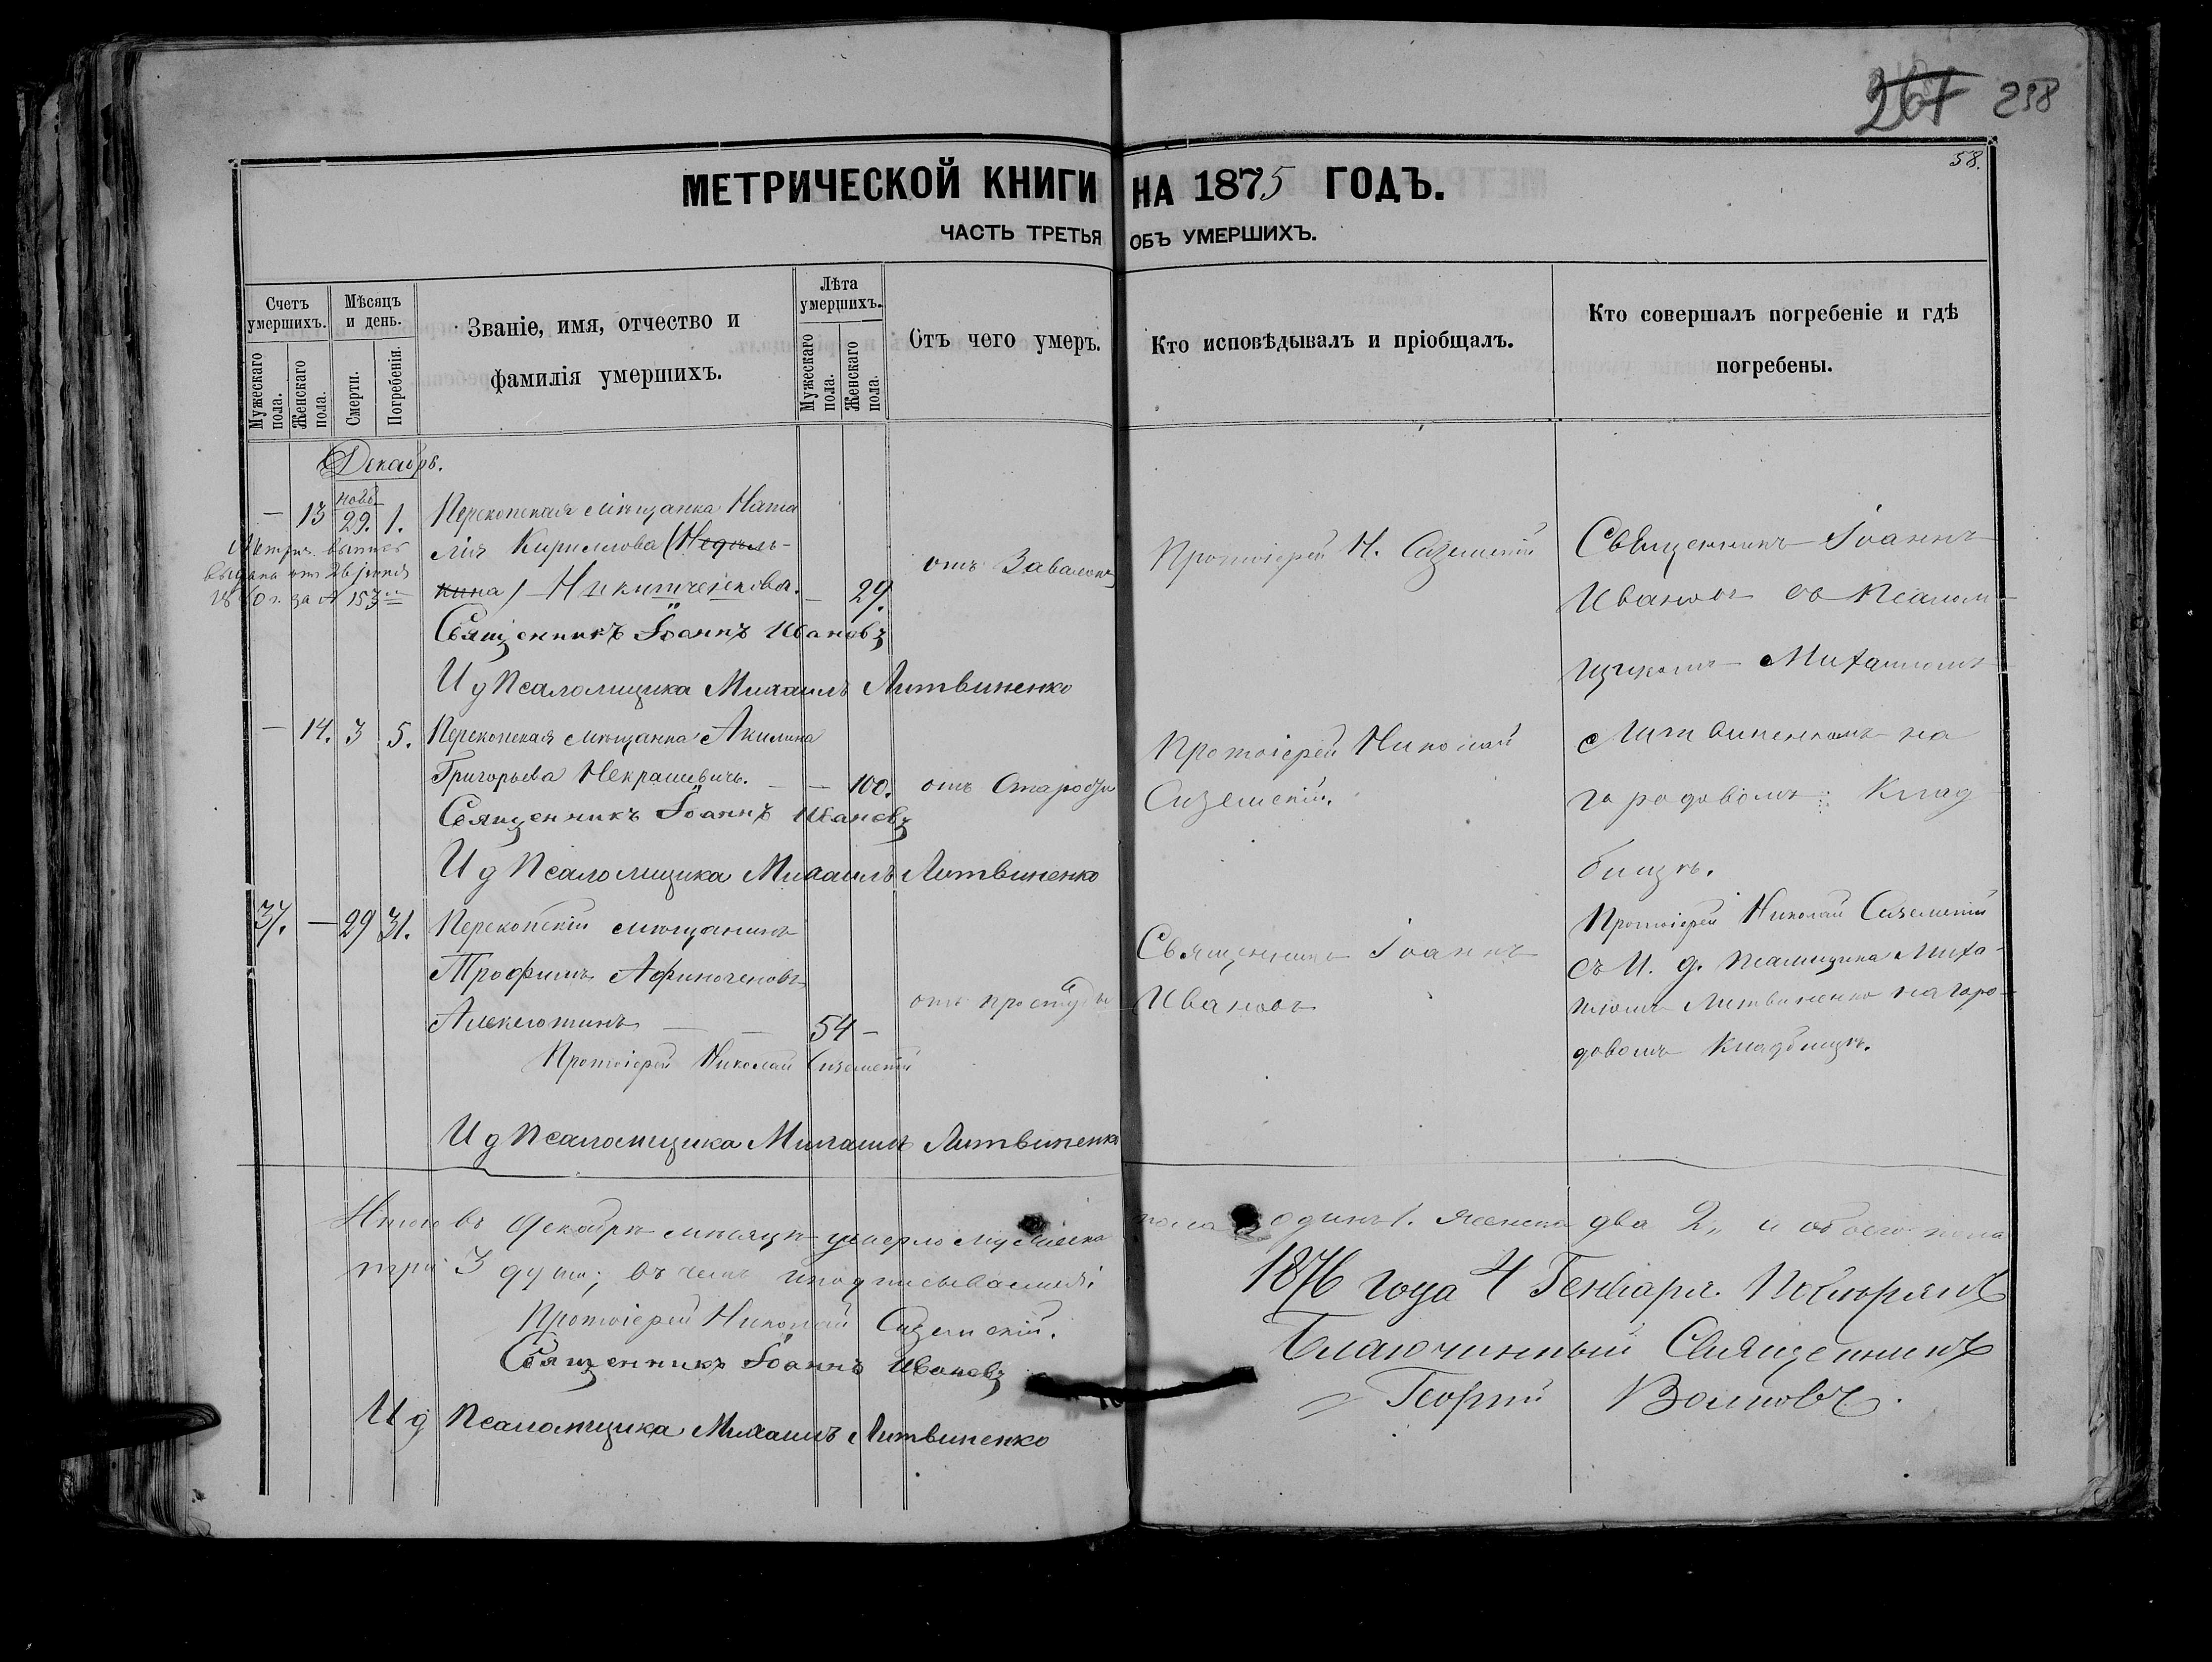 267 258
58.
МЕТРИЧЕСКОЙ КНИГИ НА 1875 ГОДЪ.
ЧАСТЬ ТРЕТЬЯ ОБЪ УМЕРШИХЪ.
Счетъ умершихъ.
Мужескаго пола.
Женскаго пола.
Мѣсяцъ и день.
Смерти.
Погребенія.
Званіе, имя, отчество и
фамилія умершихъ.
Лѣта умершихъ.
Мужескаго пола.
Женскаго пола.
Отъ чего умеръ.
Кто исповѣдывалъ и пріобщалъ.
Кто совершалъ погребеніе и гдѣ
погребены.
Декабрь.
нояб
— 13 29. 1. Перекопская мѣщанка Ната
лія Кириллова (Недѣль-
кина) Никитченкова. — 29.
Метрич. выпись
выдана отъ 26 іюня
за № 153
отъ
Протоіерей Н. Сиземскій
Священникъ Іоаннъ
Ивановъ съ Псалом-
щикомъ Михаиломъ
Литвиненкомъ на
городовомъ Клад
бищѣ.
Священникъ Іоаннъ Ивановъ
И д Псаломщика Михаилъ Литвиненко
— 14. 3 5. Перекопская мѣщанка Акилина
Григорьева Некрашевичъ. — — 100. отъ Старости
Протоіерей Николай
Сиземскій.
Священникъ Іоаннъ Ивановъ
И д Псаломщика Михаилъ Литвиненко
37. — 29 31. Перекопскій мѣщанинъ
Трофимъ Афиногеновъ
— — 54 —
отъ простуды
Священникъ Іоаннъ
Ивановъ
Протоіерей Николай Сиземскій
съ И. д. Псаломщика Миха-
иломъ Литвиненко на горо-
довомъ кладбищѣ.
Протоіерей Николай Сиземскій
И д Псаломщика Михаилъ Литвиненко
Итого въ Декабрѣ мѣсяцѣ умерло мужеска пола одинъ 1. женска два 2, и обоего пола
три 3 души; въ чемъ и подписываемся:
Протоіерей Николай Сиземскій.
Священникъ Іоаннъ Ивановъ
И д Псаломщика Михаилъ Литвиненко
1876 года 4 Генваря. Повѣрялъ
Благочинный Священникъ
Георгій